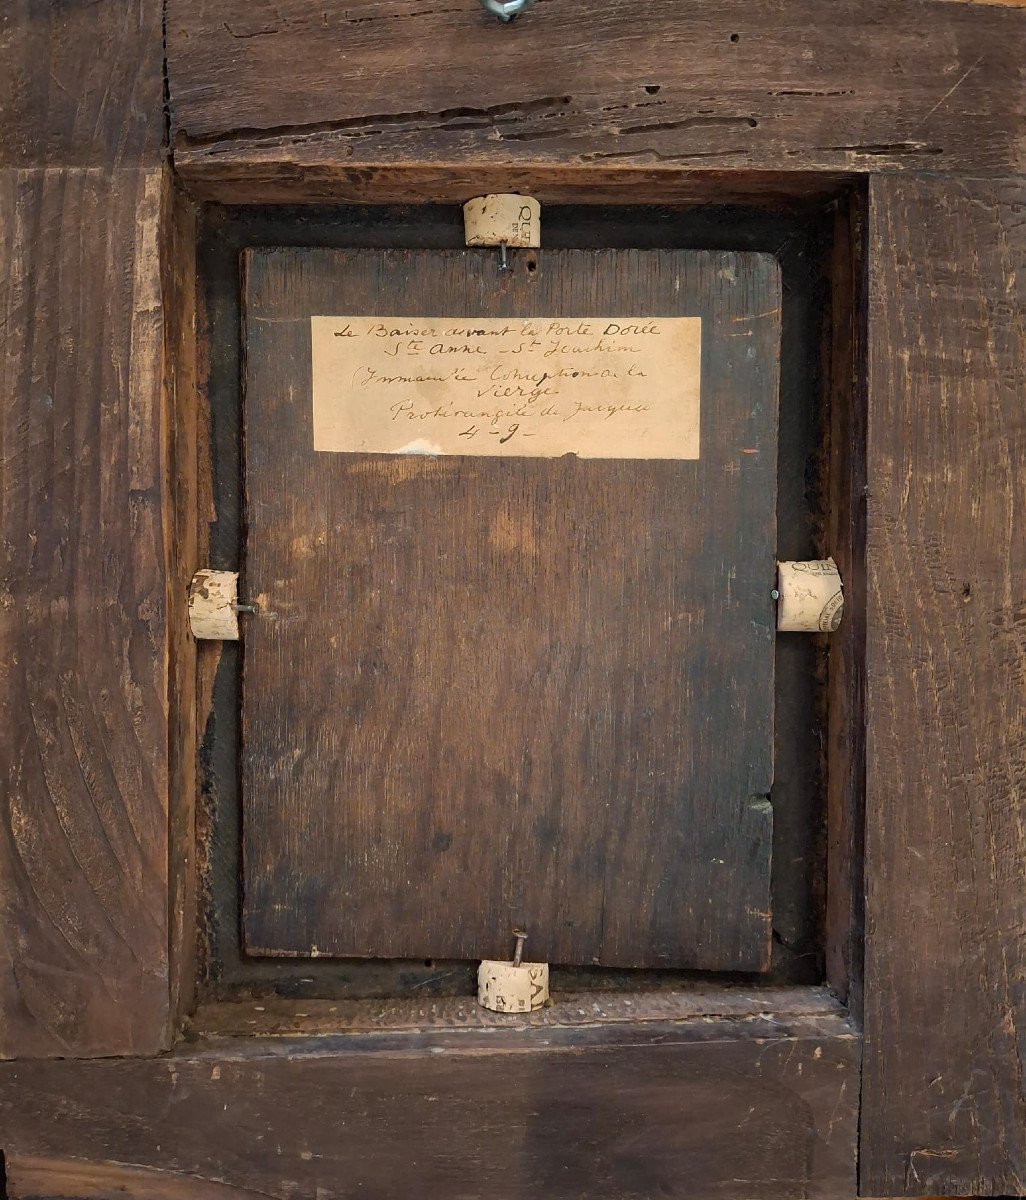 Le Baiser devant la Porte Dorée
Ste Anne - St Joachim
(Immaculée Conception de la
Vierge
Protévangile de Jacques
4 - 9 -
QUIN